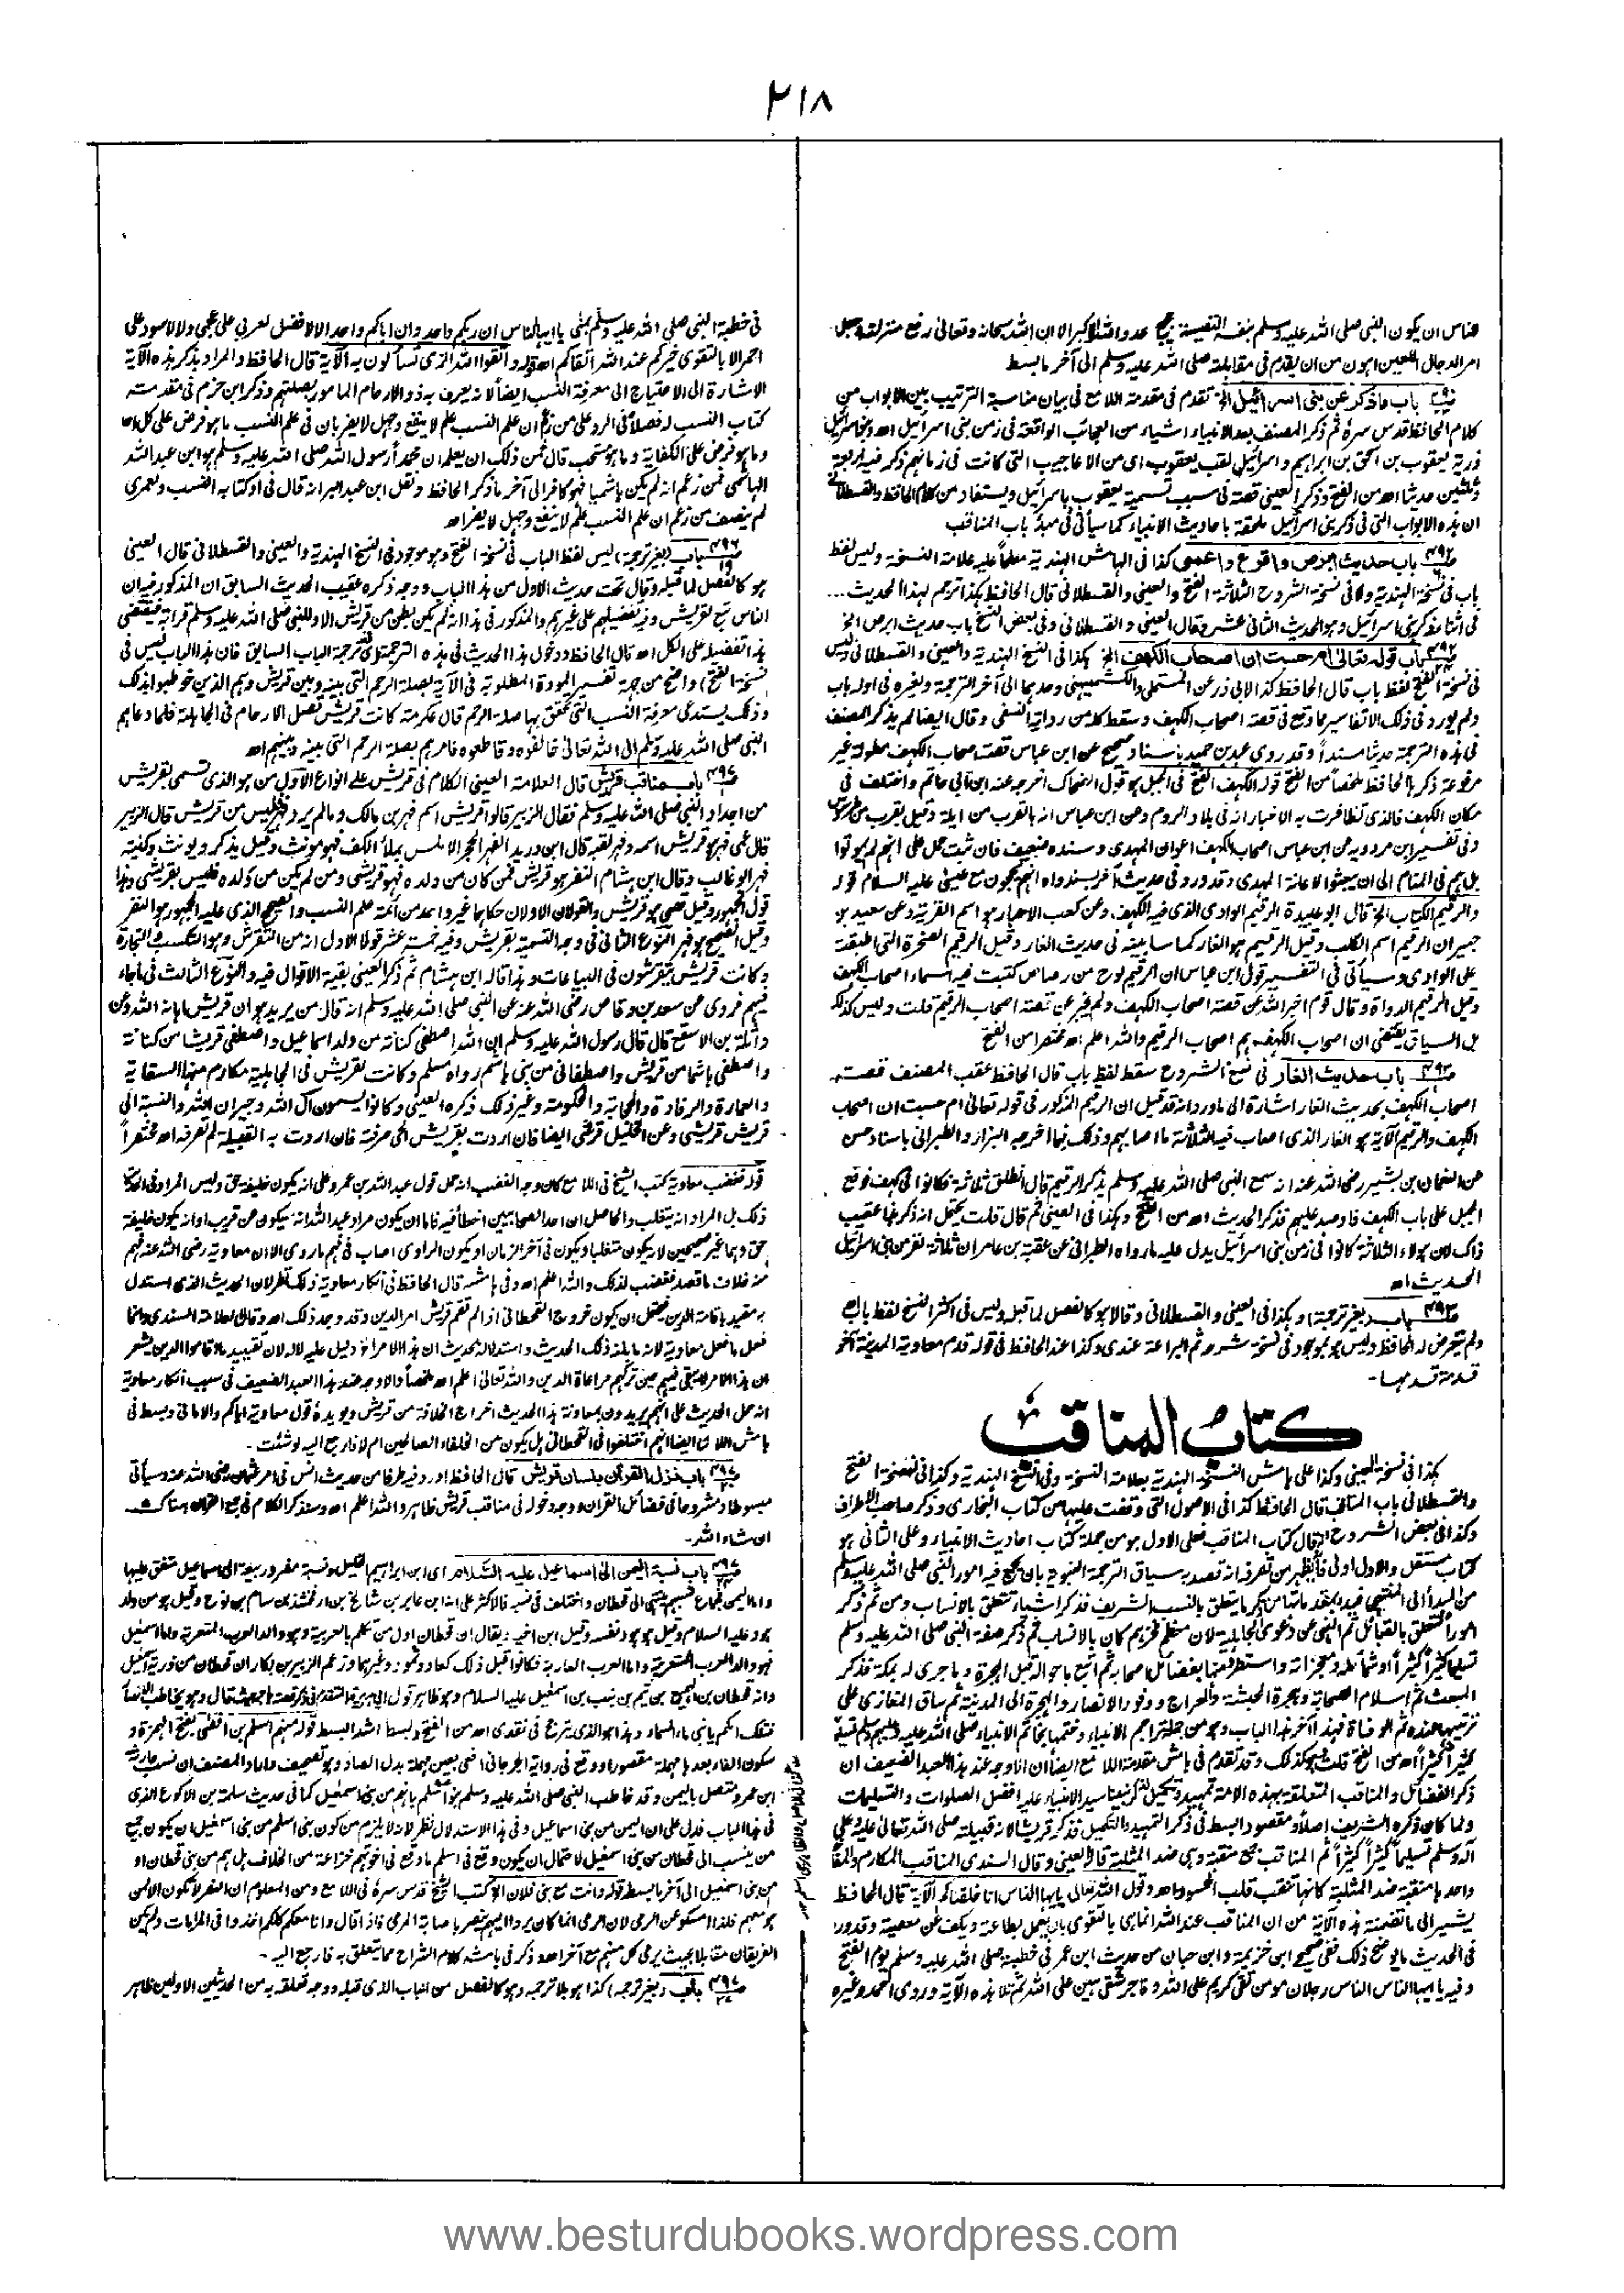 ٢١٨
مناس ان يكون النبي صلى الله عليه وسلم بنفسه النفيسة عدو الله الاكبر الا ان الله سبحانه وتعالى رفع منزلته وجعل
امر الدجال اللعين اهون من ان يقدم في مقابلته صلى الله عليه وسلم الى آخر ما بسط
باب ما ذكر عن بني اسرائيل الخ تقدم في مقدمة اللامع في بيان مناسبة الترتيب بين الابواب من
كلام الحافظ قدس سره ثم ذكر المصنف بعد الانبياء اشياء من العجائب الواقعة في زمن بني اسرائيل اھ وبنو اسرائيل
ذرية يعقوب بن اسحق بن ابراهيم و اسرائيل لقب يعقوب اى من الاعاجيب التي كانت في زمانهم ذكر فيه اربعة
وثلثين حديثا اھ من الفتح وذكر العيني قصة في سبب تسمية يعقوب باسرائيل ويستفاد من كلام الحافظ والقسطلاني
ان هذه الابواب التي في ذكر بني اسرائيل ملحقة باحاديث الانبياء كما سيأتي في مبدأ باب المناقب
باب حديث ابرص واقرع واعمى كذا في الهامش الهندية معلماً عليه علامة النسخة وليس لفظ
باب في نسخة الهندية ولا في نسخة الشروح الثلاثة الفتح والعيني والقسطلاني قال الحافظ هكذا ترجم لهذا الحديث ...
في اثناء ذكر بني اسرائيل وهو الحديث الثاني عشر وقال العيني و القسطلاني وفي بعض النسخ باب حديث ابرص الخ
باب قوله تعالى ام حسبت ان اصحاب الكهف الخ هكذا في النسخ الهندية والعيني و القسطلاني وليس
في نسخة الفتح لفظ باب قال الحافظ كذا لابي ذر عن المستملي والكشميهني وحدهما الى آخر الترجمة ولغيره في اوله باب
ولم يورد في ذلك الا تفاسير مما وقع في قصة اصحاب الكهف وسقط كله من رواية النسفي وقال ايضا لم يذكر المصنف
في هذه الترجمة حديثا مسنداً وقد روى عبد بن حميد باسناد صحيح عن ابن عباس قصة اصحاب الكهف مطولة غير
مرفوعة ذكرها الحافظ ملخصاً من الفتح قوله الكهف الفتح في الجبل هو قول الضحاك اخرجه عنه ابن ابي حاتم واختلف في
مكان الكهف فالذي تظافرت به الاخبار انه في بلاد الروم وعن ابن عباس انه بالقرب من ايلة وقيل بقرب من طرسوس
وفي تفسير ابن مردويه عن ابن عباس اصحاب الكهف اعوان المهدي وسنده ضعيف فان ثبت حمل على انهم لم يموتوا
بل هم في المنام الى ان يبعثوا لاعانة المهدي وقد ورد في حديث آخر بسند واه انهم يحجون مع عيسى عليه السلام قوله
والرقيم الكتاب الخ قال ابو عبيدة الرقيم الوادي الذي فيه الكهف وعن كعب الاحبار هو اسم القرية وعن سعيد بن
جبير ان الرقيم اسم الكلب وقيل الرقيم هو الغار كما سأبينه في حديث الغار وقيل الرقيم الصخرة التي اطبقت
على الوادي وسيأتي في التفسير قول ابن عباس ان الرقيم لوح من رصاص كتبت فيه اسماء اصحاب الكهف
وقيل الرقيم الدواة وقال قوم اخبر الله عن قصة اصحاب الكهف ولم يخبر عن قصة اصحاب الرقيم قلت وليس كذلك
بل السياق يقتضي ان اصحاب الكهف هم اصحاب الرقيم والله اعلم اھ مختصرا من الفتح
باب حديث الغار في نسخ الشروح سقط لفظ باب قال الحافظ عقب المصنف قصة
اصحاب الكهف بحديث الغار اشارة الى ما ورد انه قد قيل ان الرقيم المذكور في قوله تعالى ام حسبت ان اصحاب
الكهف والرقيم الآية هو الغار الذي اصاب فيه الثلاثة ما اصابهم وذلك فيما اخرجه البزار والطبراني باسناد حسن
عن النعمان بن بشير رضي الله عنه انه سمع النبي صلى الله عليه وسلم يذكر الرقيم قال انطلق ثلاثة فكانوا في كهف فوقع
الجبل على باب الكهف فاوصد عليهم فذكر الحديث اھ من الفتح وهكذا في العيني ثم قال قلت يحتمل انه ذكر هذا عقيب
ذاك لان هؤلاء الثلاثة كانوا في زمن بني اسرائيل يدل عليه ما رواه الطبراني عن عقبة بن عامر ان ثلاثة نفر من بني اسرائيل
الحديث اھ
باب (بغير ترجمة) وهكذا في العيني والقسطلاني وقالا هو كالفصل لما قبل وليس في اكثر النسخ لفظ باب اھ
ولم يتعرض له الحافظ وليس هو بموجود في نسخة شرحه ثم البراعة عندي وكذا عند الحافظ في قوله قدم معاوية المدينة آخر
قدمة قدمها ـ
كتاب المناقب
هكذا في نسخة العيني وكذا على هامش النسخة الهندية بعلامة النسخة وفي النسخ الهندية وكذا في نسخة الفتح
والقسطلاني باب المناقب قال الحافظ كذا في الاصول التي وقفت عليها من كتاب البخاري وذكر صاحب الاطراف
وكذا في بعض الشروح انه قال كتاب المناقب فعلى الاول هو من جملة كتاب احاديث الانبياء وعلى الثاني هو
كتاب مستقل والاول اولى فانه يظهر من تصرفه انه قصد به سياق الترجمة النبوية بان يجمع فيه امور النبي صلى الله عليه وسلم
من المبدأ الى المنتهى فبدأ بمقدماتها من ذكر ما يتعلق بالنسب الشريف فذكر اشياء تتعلق بالانساب ومن ثم ذكر
اموراً تتعلق بالقبائل ثم النهي عن دعوى الجاهلية لان معظم فخرهم كان بالانساب ثم ذكر صفة النبي صلى الله عليه وسلم
تسليماً كثيراً كثيراً وشمائله ومعجزاته واستطرد منها بفضائل اصحابه ثم اتبع باحواله قبل الهجرة وما جرى له بمكة فذكر
المبعث ثم اسلام الصحابة وهجرة الحبشة والمعراج ووفود الانصار والهجرة الى المدينة ثم ساق المغازي على
ترتيبها عنده ثم الوفاة فهذا آخر هذا الباب وهو من جملة تراجم الانبياء وختمها بخاتم الانبياء صلى الله عليه وعليهم وسلم تسليماً
كثيراً كثيراً اھ من الفتح قلت هو كذلك وقد تقدم في هامش مقدمة اللامع ايضاً ان الاوجه عند هذا العبد الضعيف ان
ذكر الفضائل والمناقب المتعلقة بهذه الامة تمهيد وتكميل لذكر نبينا سيد الانبياء عليه افضل الصلوات والتسليمات
ولما كان ذكره الشريف اصلاً ومقصودا بسط في ذكر التمهيد والتكميل فذكر قريشا لانه قبيلته صلى الله تعالى عليه وعلى
آله وسلم تسليماً كثيراً كثيراً ثم المناقب جمع منقبة وهي ضد المثلبة قاله العيني وقال السندي المناقب المكارم والمفاخر
واحدها منقبة ضد المثلبة كانها تنقب قلب الحسود اھ وقول الله تعالى يايها الناس انا خلقناكم الآية قال الحافظ
يشير الى ما تضمنته هذه الآية من ان المناقب عند الله انما هي بالتقوى بان يعمل بطاعته ويكف عن معصيته وقد ورد
في الحديث ما يوضح ذلك ففي صحيح ابن خزيمة وابن حبان من حديث ابن عمر في خطبته صلى الله عليه وسلم يوم الفتح
وفيه يا ايها الناس الناس رجلان مومن تقي كريم على الله وفاجر شقي هين على الله ثم تلا هذه الآية وروى احمد وغيره
في خطبة النبي صلى الله عليه وسلم بمنى يا ايها الناس ان ربكم واحد وان اباكم واحد الا لا فضل لعربي على عجمي ولا لاسود على
احمر الا بالتقوى خيركم عند الله اتقاكم اھ قوله واتقوا الله الذي تساءلون به الآية قال الحافظ والمراد بذكر هذه الآية
الاشارة الى الاحتياج الى معرفة النسب ايضاً لانه يعرف به ذو الارحام المامور بصلتهم وذكر ابن حزم في مقدمة
كتاب النسب له فصلا في الرد على من زعم ان علم النسب علم لا ينفع وجهل لا يضر بان في علم النسب ما هو فرض على كل احد
وما هو فرض على الكفاية وما هو مستحب قال فمن ذلك ان يعلم ان محمد ارسول الله صلى الله عليه وسلم هو ابن عبد الله
الهاشمي فمن زعم انه لم يكن هاشميا فهو كافر الى آخر ما ذكر الحافظ ونقل ابن عبد البر انه قال في اول كتابه النسب ولعمري
لم ينصف من زعم ان علم النسب علم لا ينفع وجهل لا يضر اھ
باب (بغير ترجمة) ليس لفظ الباب في نسخة الفتح وهو موجود في النسخ الهندية والعيني والقسطلاني قال العيني
هو كالفصل لما قبله وقال تحت حديث الاول من هذا الباب ووجه ذكره عقيب الحديث السابق ان المذكور فيه ان
الناس تبع لقريش وفيه تفضيلهم على غيرهم والمذكور في هذا انه لم يكن بطن من قريش الا وللنبي صلى الله عليه وسلم قرابة فيقتضي
هذا تفضيله على الكل اھ قال الحافظ ودخول هذا الحديث في هذه الترجمة (اى ترجمة الباب السابق فان هذا الباب ليس في
نسخة الفتح) واضح من جهة تفسير المودة المطلوبة في الآية بصلة الرحم التي بينه وبين قريش وهم الذين خوطبوا بذلك
وذلك يستدعي معرفة النسب التي تحقق بها صلة الرحم قال عكرمة كانت قريش تصل الارحام في الجاهلية فلما دعاهم
النبي صلى الله عليه وسلم الى الله تعالى خالفوه وقاطعوه فامرهم بصلة الرحم التي بينه وبينهم اھ
باب مناقب قريش قال العلامة العيني الكلام في قريش على انواع الاول من هو الذي تسمى بقريش
من اجداد النبي صلى الله عليه وسلم فقال الزبير قالوا قريش اسم فهر بن مالك وما لم يلد فهر فليس من قريش قال الزبير
قال عمي فهر هو قريش اسمه وفهر لقبه قال ابن دريد الفهر الحجر الاملس يملأ الكف فهو مونث وقيل يذكر ويونث وكنية
فهر ابو غالب وقال ابن هشام النضر هو قريش فمن كان من ولده فهو قرشي ومن لم يكن من ولده فليس بقرشي وهذا
قول الجمهور وقيل قصي هو قريش والقولان الاولان حكاهما غير واحد من ائمة علم النسب والصحيح الذي عليه الجمهور هو النضر
وقيل الصحيح هو فهر النوع الثاني في وجه التسمية بقريش وفيه خمسة عشر قولا الاول انه من التقرش وهو التكسب والتجارة
وكانت قريش يتقرشون في البياعات وهذا قاله ابن هشام ثم ذكر العيني بقية الاقوال فيه والنوع الثالث فيما جاء
فيهم فروى عن سعد بن وقاص رضي الله عنه عن النبي صلى الله عليه وسلم انه قال من يرد هوان قريش اهانه الله وعن
واثلة بن الاسقع قال قال رسول الله عليه وسلم ان الله اصطفى كنانة من ولد اسماعيل واصطفى قريشا من كنانة
واصطفى هاشما من قريش واصطفاني من بني هاشم رواه مسلم وكانت لقريش في الجاهلية مكارم منها السقاية
والعمارة والرفادة والحجابة والحكومة وغير ذلك ذكره العيني وكانوا يسمون آل الله وجيران الله والنسبة الى
قريش قريشي وعن الخليل قرشي ايضا فان اردت بقريش الحي صرفته فان اردت به القبيلة لم تصرفه اھ مختصراً
قوله فغضب معاوية كتب الشيخ في اللامع كان وجه الغضب انه حمل قول عبد الله بن عمرو على انه يكون خليفة حق وليس المراد في الحديث
ذلك بل المراد انه يتغلب والحاصل ان احد الصحابيين اخطأ فيه فاما ان يكون مراد عبد الله انه سيكون عن قريب او انه يكون خليفة
حق وهما غير صحيحين لانه يكون متغلبا ويكون في آخر الزمان او يكون الراوي اصاب في فهم ما روى الا ان معاوية رضي الله عنه فهم
منه خلاف ما قصد فغضب لذلك والله اعلم اھ وفي هامشه قال الحافظ في انكار معاوية ذلك نظر لان الحديث الذي استدل
به مقيد باقامة الدين فيحتمل ان يكون خروج القحطاني اذا لم تقم قريش امر الدين وقد وجد ذلك اھ وقال العلامة السندي وانما
فعل ما فعل معاوية لانه ما بلغه ذلك الحديث واستدلاله بحديث ان هذا الامر الخ دليل عليه لا له لان تقييده ما اقاموا الدين يشعر
ان هذا الامر لا يبقى فيهم حين تركهم مراعاة الدين والله تعالى اعلم اھ ملخصاً والاوجه عند هذا العبد الضعيف في سبب انكار معاوية
انه حمل الحديث على انهم يريدون بمعاونة هذا الحديث اخراج الخلافة من قريش ويؤيده قول معاوية اياكم والاماني وبسط في
هامش اللامع ايضا انهم اختلفوا في القحطاني هل يكون من الخلفاء الصالحين ام لا فارجع اليه لو شئت ـ
باب نزل القرآن بلسان قريش قال الحافظ اورد فيه طرفا من حديث انس في امر عثمان رضي الله عنه وسيأتي
مبسوطا ومشروحا في فضائل القران ووجه دخوله في مناقب قريش ظاهر والله اعلم اھ وسنذكر الكلام في جمع القران هناك
ان شاء الله ـ
باب نسبة اليمن الى اسماعيل عليه السلام اى ابن ابراهيم الخليل ونسبة مضر وربيعة الى اسماعيل متفق عليها
واما اليمن فجماع نسبهم ينتهي الى قحطان واختلف في نسبه فالاكثر على انه ابن عابر بن شالخ بن ارفخشذ بن سام بن نوح وقيل هو من ولد
هود عليه السلام وقيل هو هود نفسه وقيل ابن اخيه ويقال ان قحطان اول من تكلم بالعربية وهو والد العرب المتعربة واما اسمعيل
فهو والد العرب المستعربة واما العرب العاربة فكانوا قبل ذلك كعاد وثمود وغيرهما وزعم الزبير بن بكار ان قحطان من ذرية اسمعيل
وانه قحطان بن الهميسع بن تيم بن نبت بن اسمعيل عليه السلام وهو ظاهر قول ابي هريرة المتقدم في قصة هاجر حيث قال وهو يخاطب الانصار
فتلك امكم يا بني ماء السماء وهذا هو الذي يترجح في نقدي اھ من الفتح وبسط اشد البسط قوله منهم اسلم بن افصى بفتح الهمزة و
سكون الفاء بعدها مهملة مقصورا ووقع في رواية الجرجاني افعى بعين مهملة بدل الصاد وهو تصحيف واراد المصنف ان نسب حارثة
ابن عمرو متصل باليمن وقد خاطب النبي صلى الله عليه وسلم بني اسلم بانهم من بني اسمعيل كما في حديث سلمة بن الاكوع الذي
في هذا الباب فدل على ان اليمن من بني اسماعيل وفي هذا الاستدلال نظر لانه لا يلزم من كون بني اسلم من بني اسمعيل ان يكون جميع
من ينسب الى قحطان من بني اسمعيل لاحتمال ان يكون وقع في اسلم ما وقع في اخوتهم خزاعة من الخلاف هل هم من بني قحطان او
من بني اسمعيل الى آخر ما بسط قوله وانت مع بني فلان الخ كتب الشيخ قدس سره في اللامع ومن المعلوم ان النصر لا تكون الا لمن
هو معهم فلذا امسكوا عن الرمي لان الرمي انما كان يرد اليهم بنصر باصابة المرمي فاذا قال وانا معكم كلكم اخذوا في المرامات ولم يكن
الفريقان متقابلا بحيث يرمي كل منهم مع آخر اھ وذكر في هامشه كلام الشراح مما يتعلق به فارجع اليه ـ
باب (بغير ترجمة) كذا هو بلا ترجمة وهو كالفصل من الباب الذي قبله ووجه تعلقه به من الحديثين الاولين ظاهر
www.besturdubooks.wordpress.com